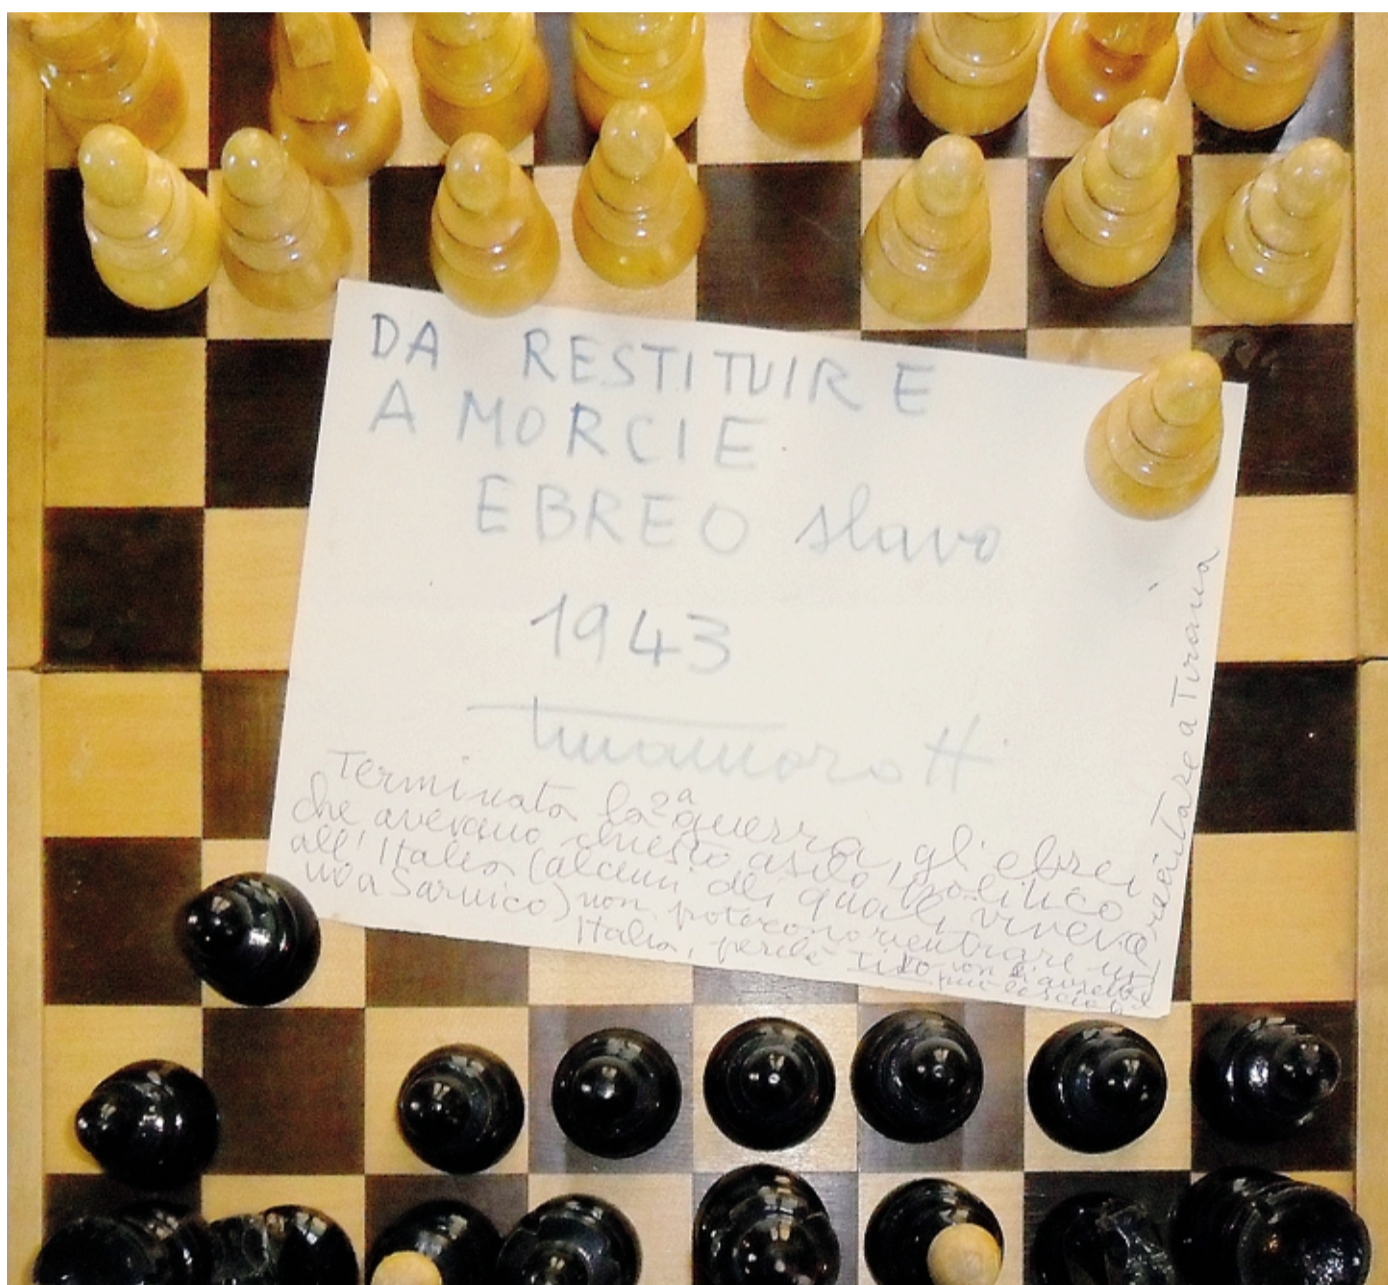 DA RESTITUIRE
A MORCIE
EBREO slavo
1943
Terminata la 2ª guerra, gli ebrei
che avevano chiesto asilo politico
all'Italia (alcuni dei quali viveva
no a Sarnico) non poterono rientrare in
Italia, perché Tito non li avrebbe
più lasciati
a Tirana